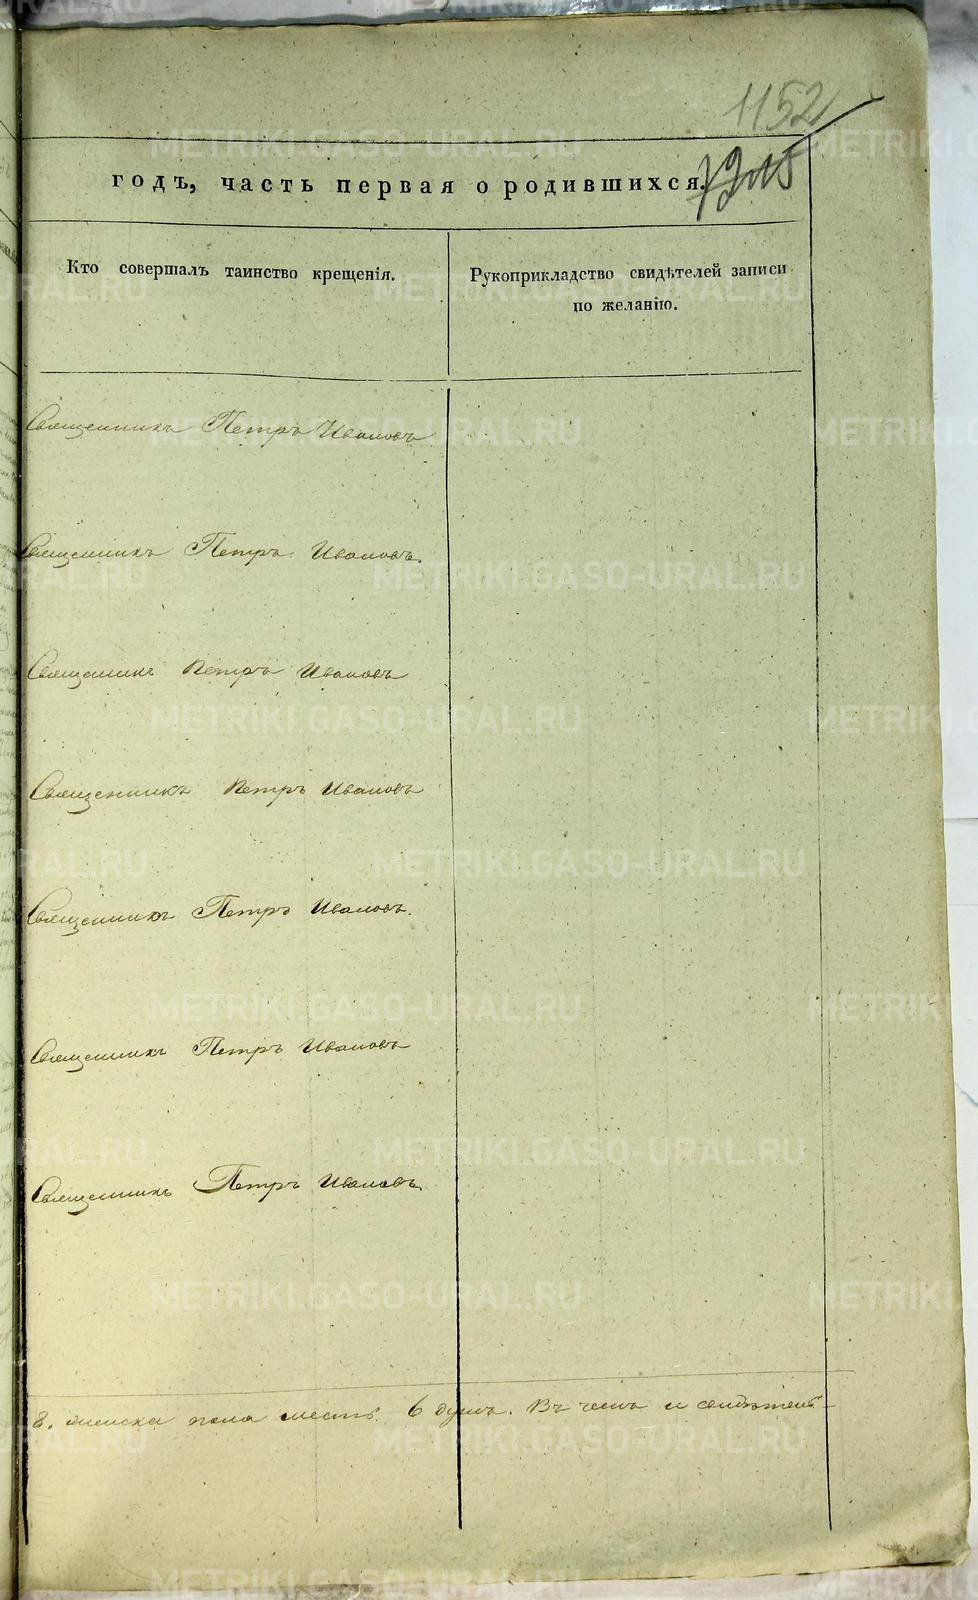 1152
годъ, часть первая о родившихся.
Кто совершалъ таинство крещенія.
Рукоприкладство свидѣтелей записи
по желанію.
Священникъ Петръ Ивановъ
Священникъ Петръ Ивановъ.
Священникъ Петръ Ивановъ
Священникъ Петръ Ивановъ
Священникъ Петръ Ивановъ.
Священникъ Петръ Ивановъ
Священникъ Петръ Ивановъ
8. женска пола шесть 6 душъ. Въ чемъ и
METRIKI.GASO-URAL.RU